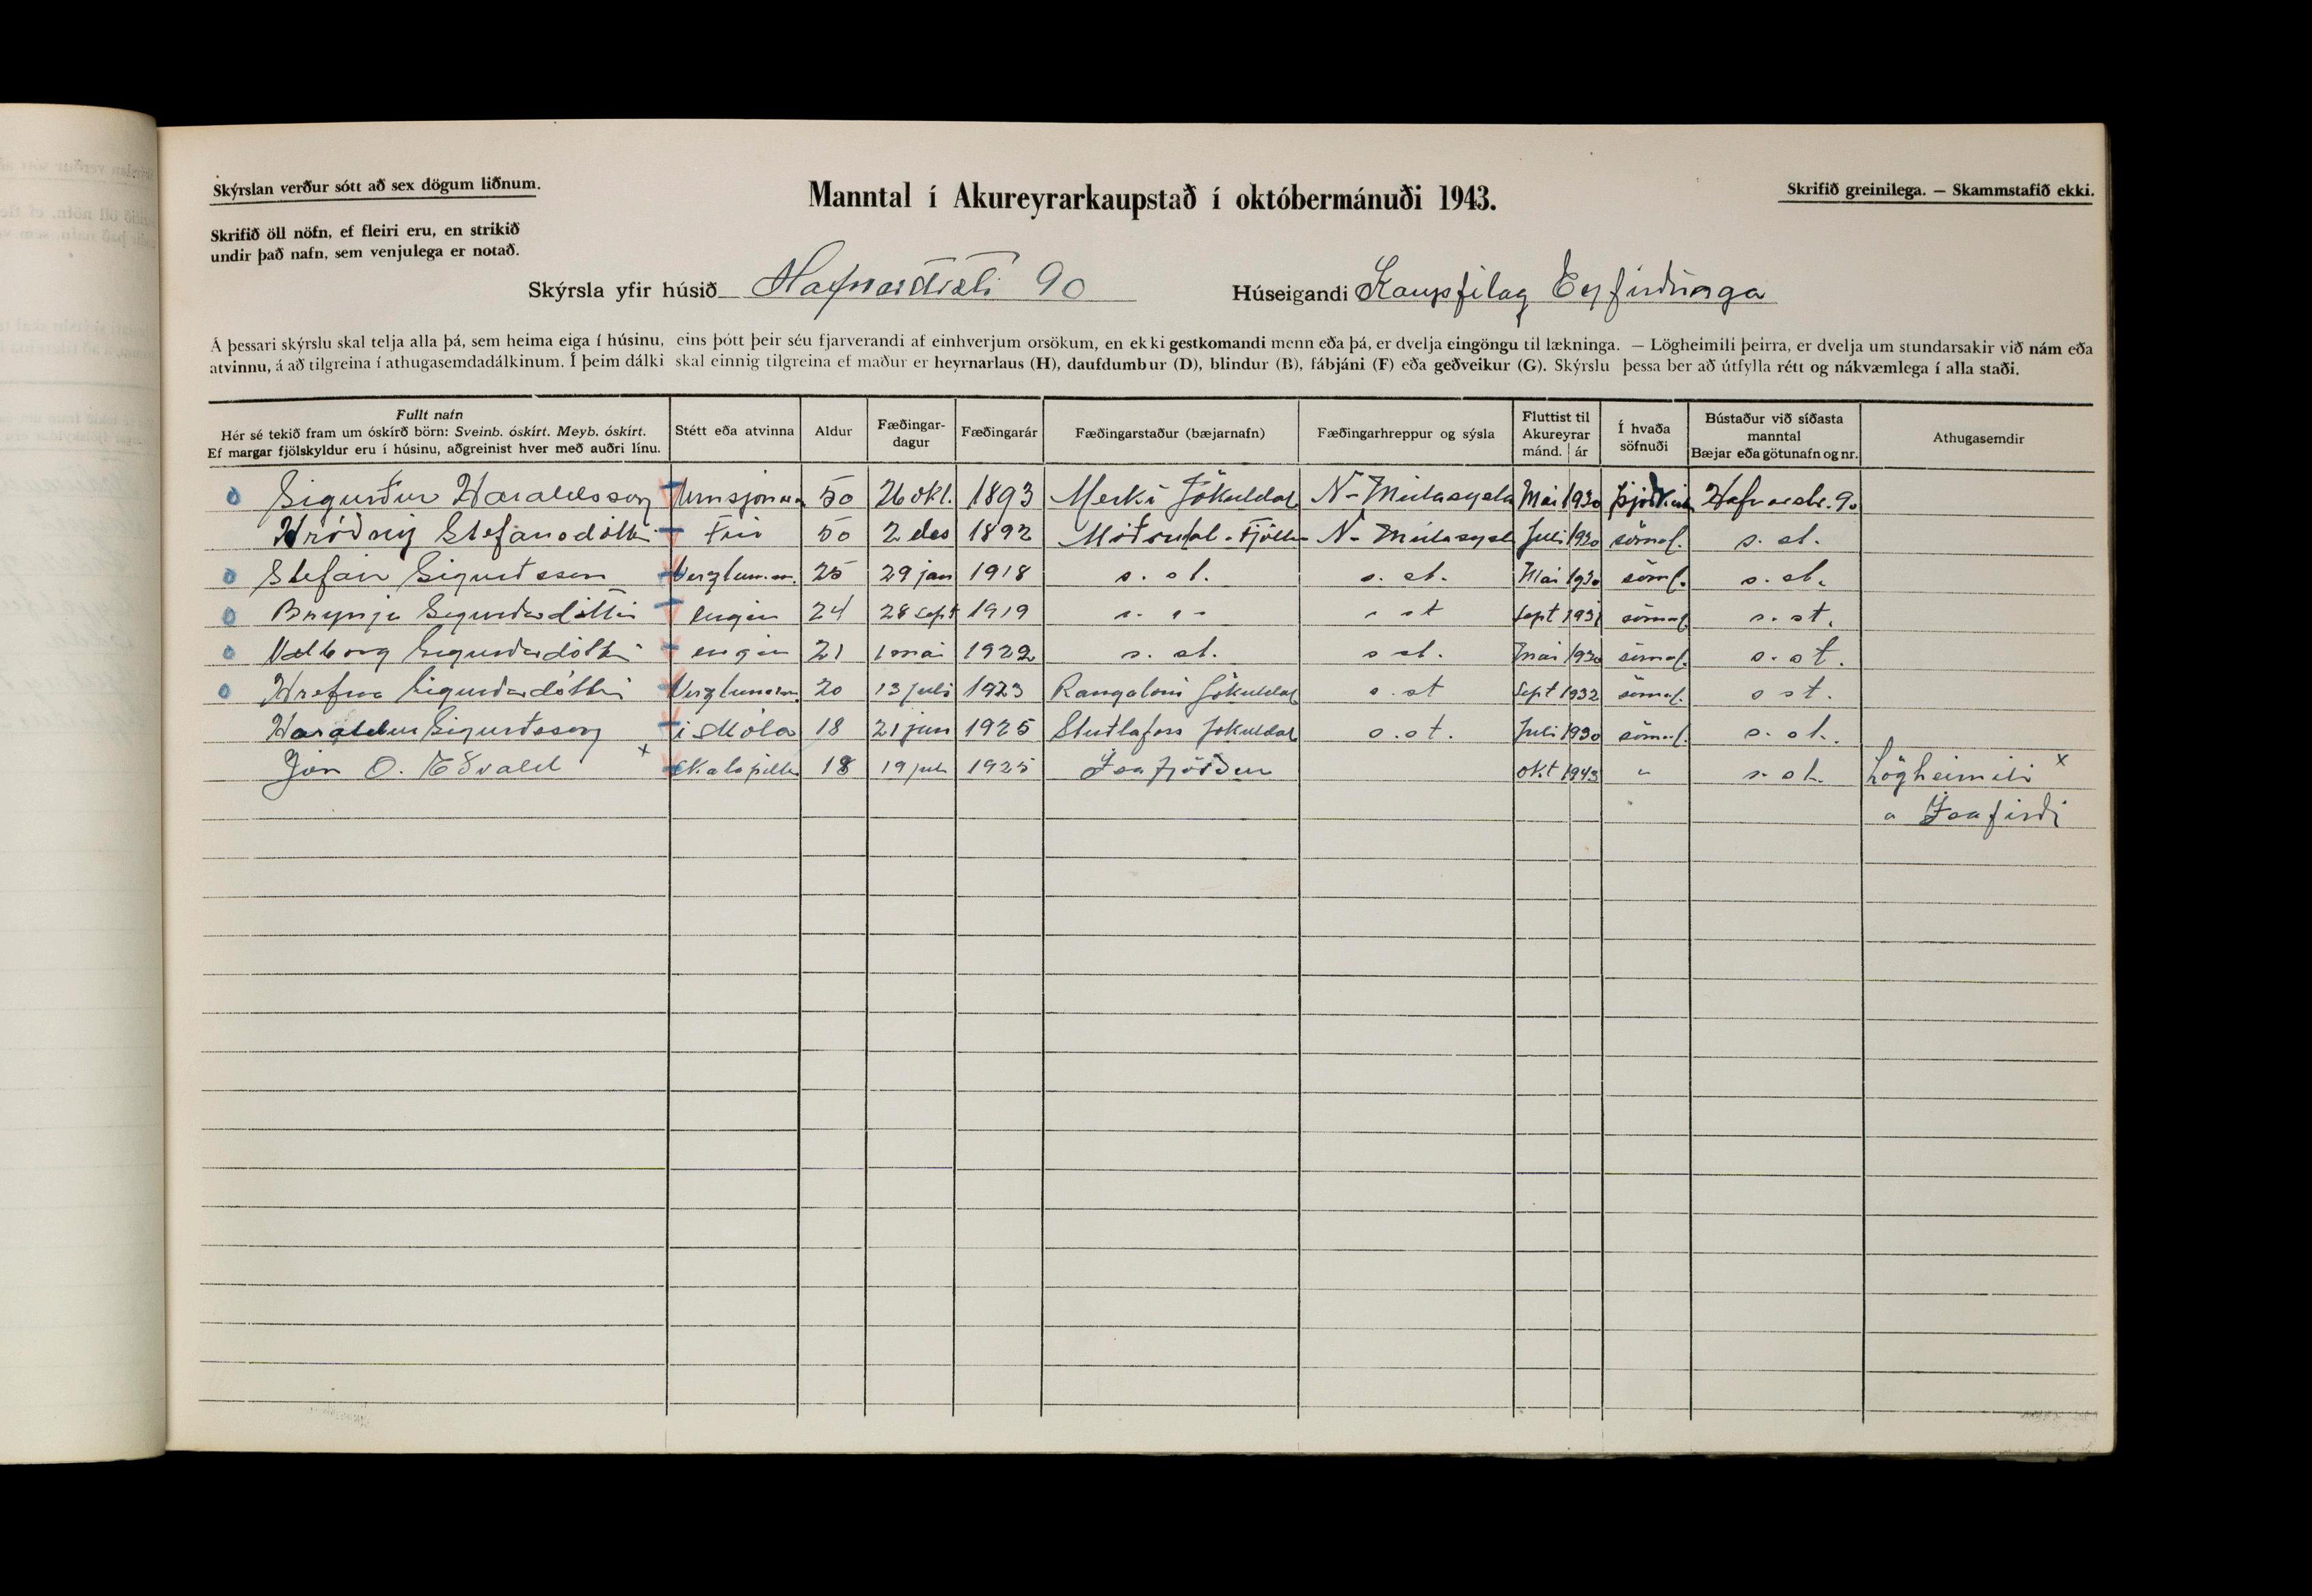 Skýrslan verður sótt að sex dögum liðnum.
Manntal í Akureyrarkaupstað í októbermánuði 1943.
Skrifið greinilega. — Skammstafið ekki.
Skrifið öll nöfn, ef fleiri eru, en strikið
undir það nafn, sem venjulega er notað.
Skýrsla yfir húsið Hafnarstræti 90 Húseigandi Kaupfélag Eyfirðinga
Á þessari skýrslu skal telja alla þá, sem heima eiga í húsinu, eins þótt þeir séu fjarverandi af einhverjum orsökum, en ekki gestkomandi menn eða þá, er dvelja eingöngu til lækninga. — Lögheimili þeirra, er dvelja um stundarsakir við nám eða
atvinnu, á að tilgreina í athugasemdadálkinum. Í þeim dálki skal einnig tilgreina ef maður er heyrnarlaus (H), daufdumbur (D), blindur (B), fábjáni (F) eða geðveikur (G). Skýrslu þessa ber að útfylla rétt og nákvæmlega í alla staði.
Fullt nafn
Hér sé tekið fram um óskírð börn: Sveinb. óskírt. Meyb. óskírt.
Ef margar fjölskyldur eru í húsinu, aðgreinist hver með auðri línu.
Stétt eða atvinna
Aldur
Fæðingar-
dagur
Fæðingarár
Fæðingarstaður (bæjarnafn)
Fæðingarhreppur og sýsla
Fluttist til
Akureyrar
mánd. ár
Í hvaða
söfnuði
Bústaður við síðasta
manntal
Bæjar eða götunafn og nr.
Athugasemdir
Sigurður Haraldsson 50 26 okt. 1893 Merki Jökuldal N-Múlasysla Mai 1930 Hafnarstr. 90
Hróðný Stefansdóttir Frú 50 2 des 1892 N-Múlasysl Juli 1930 s. st.
Stefán Sigurðsson 25 29 jan 1918 s. st. s. st. Mai 1930 s. st.
Brynja Sigurðardóttir engin 24 28 sept 1919 s st Sept 1931 s. st.
Valborg Sigurðardóttir engin 21 1 mai 1922 s. st. s st. Mai 1930 s. st.
Hrefna Sigurðardóttir 20 13 juli 1923 Jökuldal s. st Sept 1932 s st.
Haraldur Sigurðsson í skóla 18 21 jun 1925 Jökuldal s. st. Juli 1930 s. st.
Jón O. Eðvald x 18 1925 Ísafjörður okt 1943 " s. st. Lögheimili x
a Ísafirði